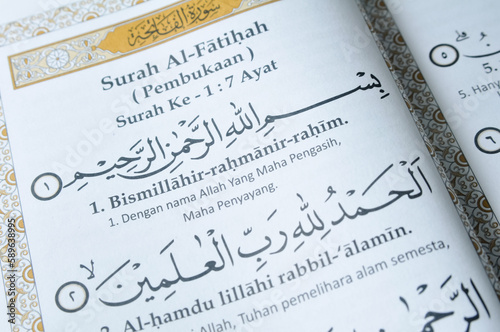 سورة الفاتحة
Surah Al-Fātiḥah
( Pembukaan )
Surah Ke - 1 : 7 Ayat
بِسْمِ اللهِ الرَّحْمٰنِ الرَّحِيْمِ ١
1. Bismillāhir-raḥmānir-raḥīm.
1. Dengan nama Allah Yang Maha Pengasih,
Maha Penyayang.
اَلْحَمْدُ لِلّٰهِ رَبِّ الْعٰلَمِيْنَۙ ٢
2. Al-ḥamdu lillāhi rabbil-‘ālamīn.
Allah, Tuhan pemelihara alam semesta,
٥
5.
5. Hany
٦
Adobe Stock
#589638995